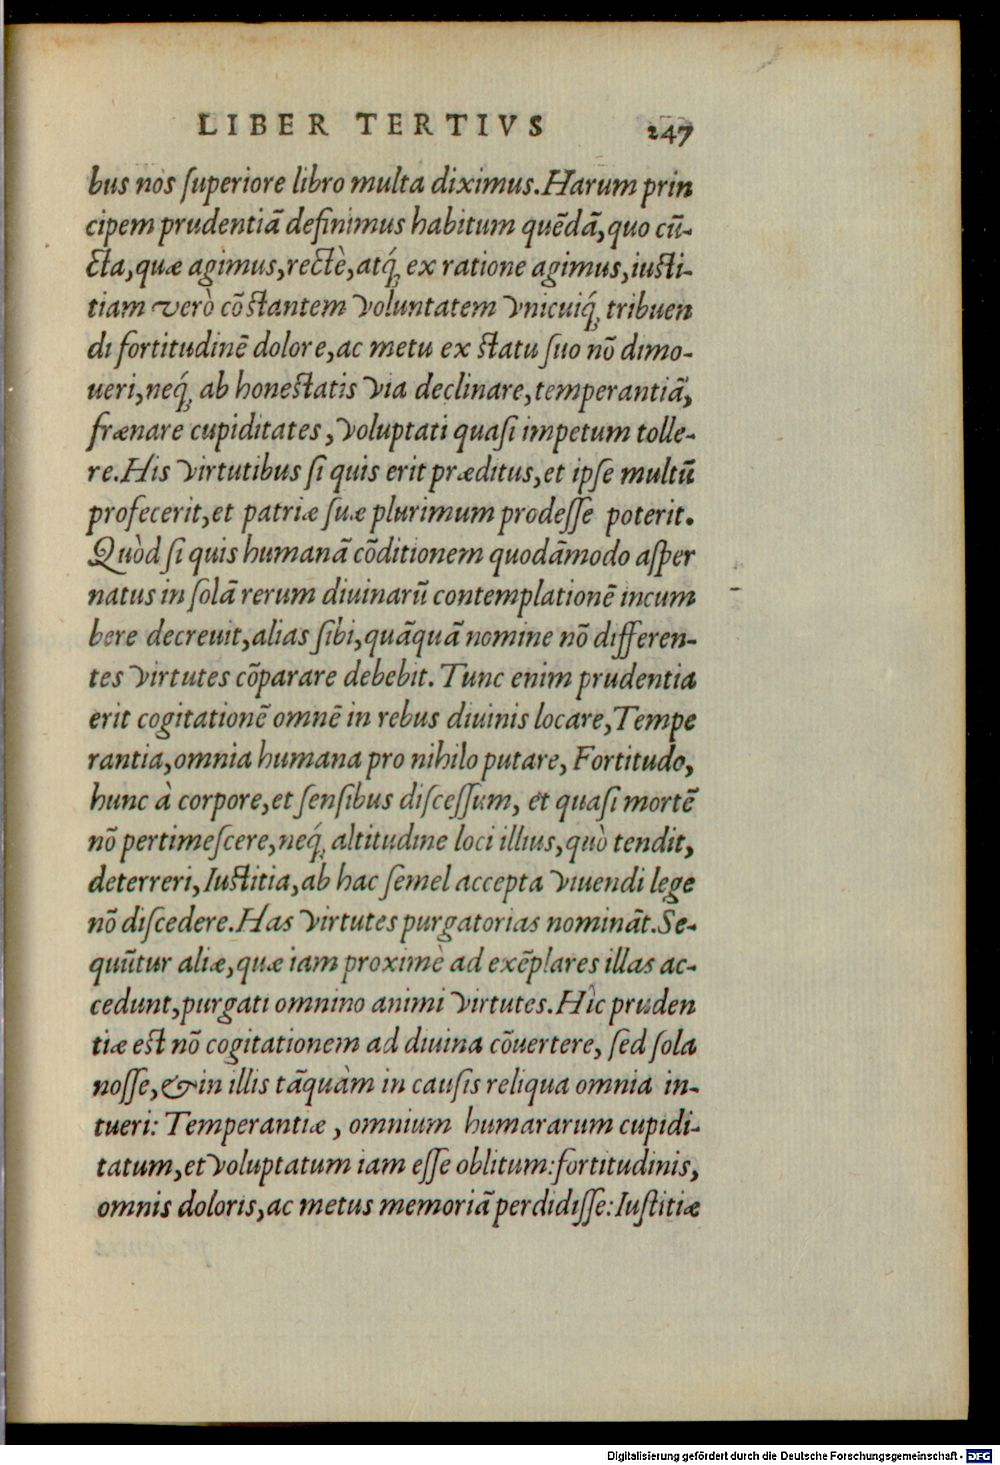 LIBER TERTIVS 247
bus nos ſuperiore libro multa diximus. Harum prin
cipem prudentiā definimus habitum quēdā, quo cū-
cta, quæ agimus, rectè, atq́; ex ratione agimus, iusti-
tiam verò cōstantem voluntatem vnicuiq́; tribuen
di fortitudinē dolore, ac metu ex statu ſuo nō dimo-
ueri, neq́; ab honestatis via declinare, temperantiā,
frænare cupiditates, voluptati quaſi impetum tolle-
re. His virtutibus ſi quis erit præditus, et ipſe multū
profecerit, et patriæ ſuæ plurimum prodeſſe poterit.
Quòd ſi quis humanā cōditionem quodāmodo aſper
natus in ſolā rerum diuinarū contemplationē incum
bere decreuit, alias ſibi, quāquā nomine nō differen-
tes virtutes cōparare debebit. Tunc enim prudentia
erit cogitationē omnē in rebus diuinis locare, Tempe
rantia, omnia humana pro nihilo putare, Fortitudo,
hunc à corpore, et ſenſibus diſceſſum, et quaſi mortē
nō pertimeſcere, neq́; altitudine loci illius, quò tendit,
deterreri, Iustitia, ab hac ſemel accepta viuendi lege
nō diſcedere. Has virtutes purgatorias nomināt. Se-
quūtur aliæ, quæ iam proximè ad exēplares illas ac-
cedunt, purgati omnino animi virtutes. Hìc pruden
tiæ est nō cogitationem ad diuina cōuertere, ſed ſola
noſſe, & in illis tāquàm in cauſis reliqua omnia in-
tueri: Temperantiæ, omnium humararum cupidi-
tatum, et voluptatum iam eſſe oblitum: fortitudinis,
omnis doloris, ac metus memoriā perdidiſſe: Iuſtitiæ
Digitalisierung gefördert durch die Deutsche Forschungsgemeinschaft - DFG